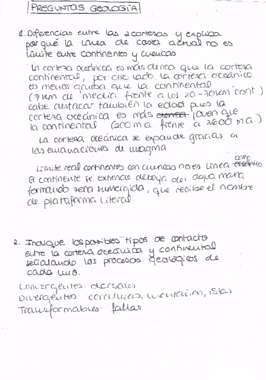 PREGUNTAS GEOLOGÍA
1. Diferencias entre las 2 cortezas y explica
por qué la línea de costa actual no es
límite entre continentes y cuencas
La corteza oceánica es más densa que la corteza
continental, por otro lado la corteza oceánica
es menos gruesa que la continental
(7km de media frente a los 20-70km cont.)
cabe destacar también la edad pues la
corteza oceánica es más joven que
la continental (200 m.a frente a 3600 m.a.)
La corteza oceánica se expande gracias a
las emanaciones de magma
Límite real continentes con cuencas no es línea costa
El continente se extiende debajo del agua marina
formando zona sumergida, que recibe el nombre
de plataforma literal
2. Indique los posibles tipos de contacto
entre la corteza oceánica y continental
señalando los procesos geológicos de
cada uno.
Convergentes
Divergentes islas
Transformables fallas